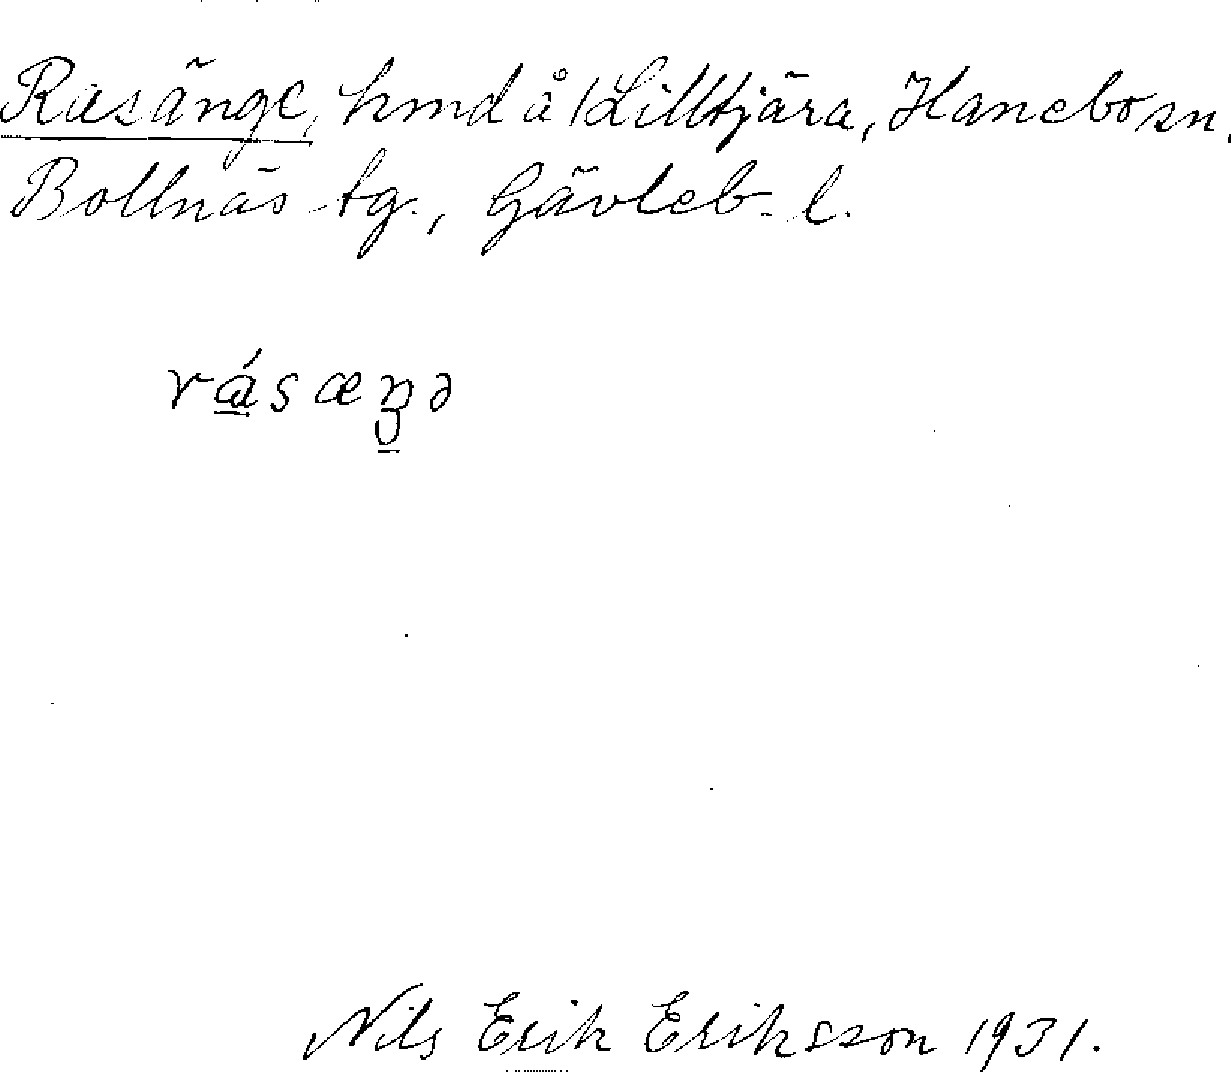 Rasänge, hmd å Lilltjära, Hanebo sn,
Bollnäs tg., Gävleb. l.
rásæŋə
Nils Erik Eriksson 1931.